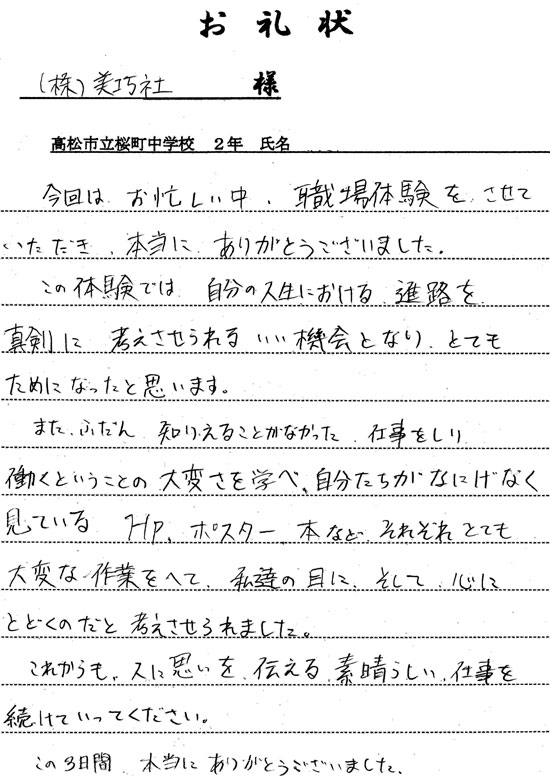 お礼状
(株)美巧社 様
高松市立桜町中学校 2年 氏名
今回は お忙しい中、職場体験を させて
いただき、本当に ありがとうございました。
この体験では 自分の人生における 進路を
真剣に 考えさせられる いい機会となり、とても
ためになったと思います。
また、ふだん 知りえることがなかった 仕事をしり
働くということの 大変さを学べ、自分たちがなにげなく
見ている HP、ポスター、本など、それぞれ とても
大変な 作業をへて、私達の目に、そして、心に
とどくのだと 考えさせられました。
これからも、人に思いを 伝える 素晴らしい 仕事を
続けていってください。
この3日間、本当に ありがとうございました。